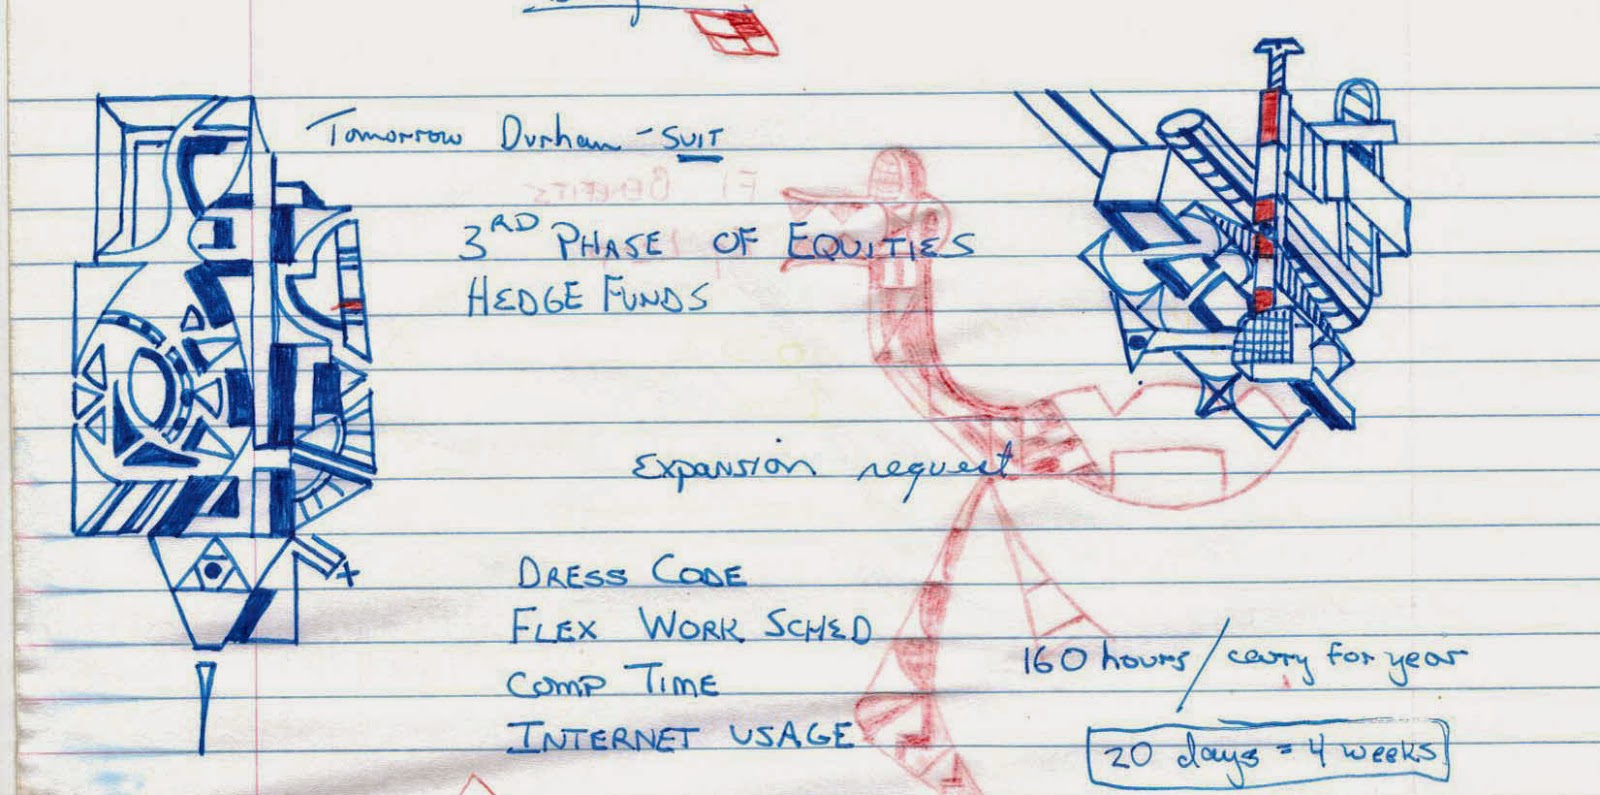 Tomorrow Durham - SUIT
3RD PHASE OF EQUITIES
HEDGE FUNDS
Expansion request
DRESS CODE
FLEX WORK SCHED
COMP TIME
INTERNET USAGE
160 hours / carry for year
20 days = 4 weeks